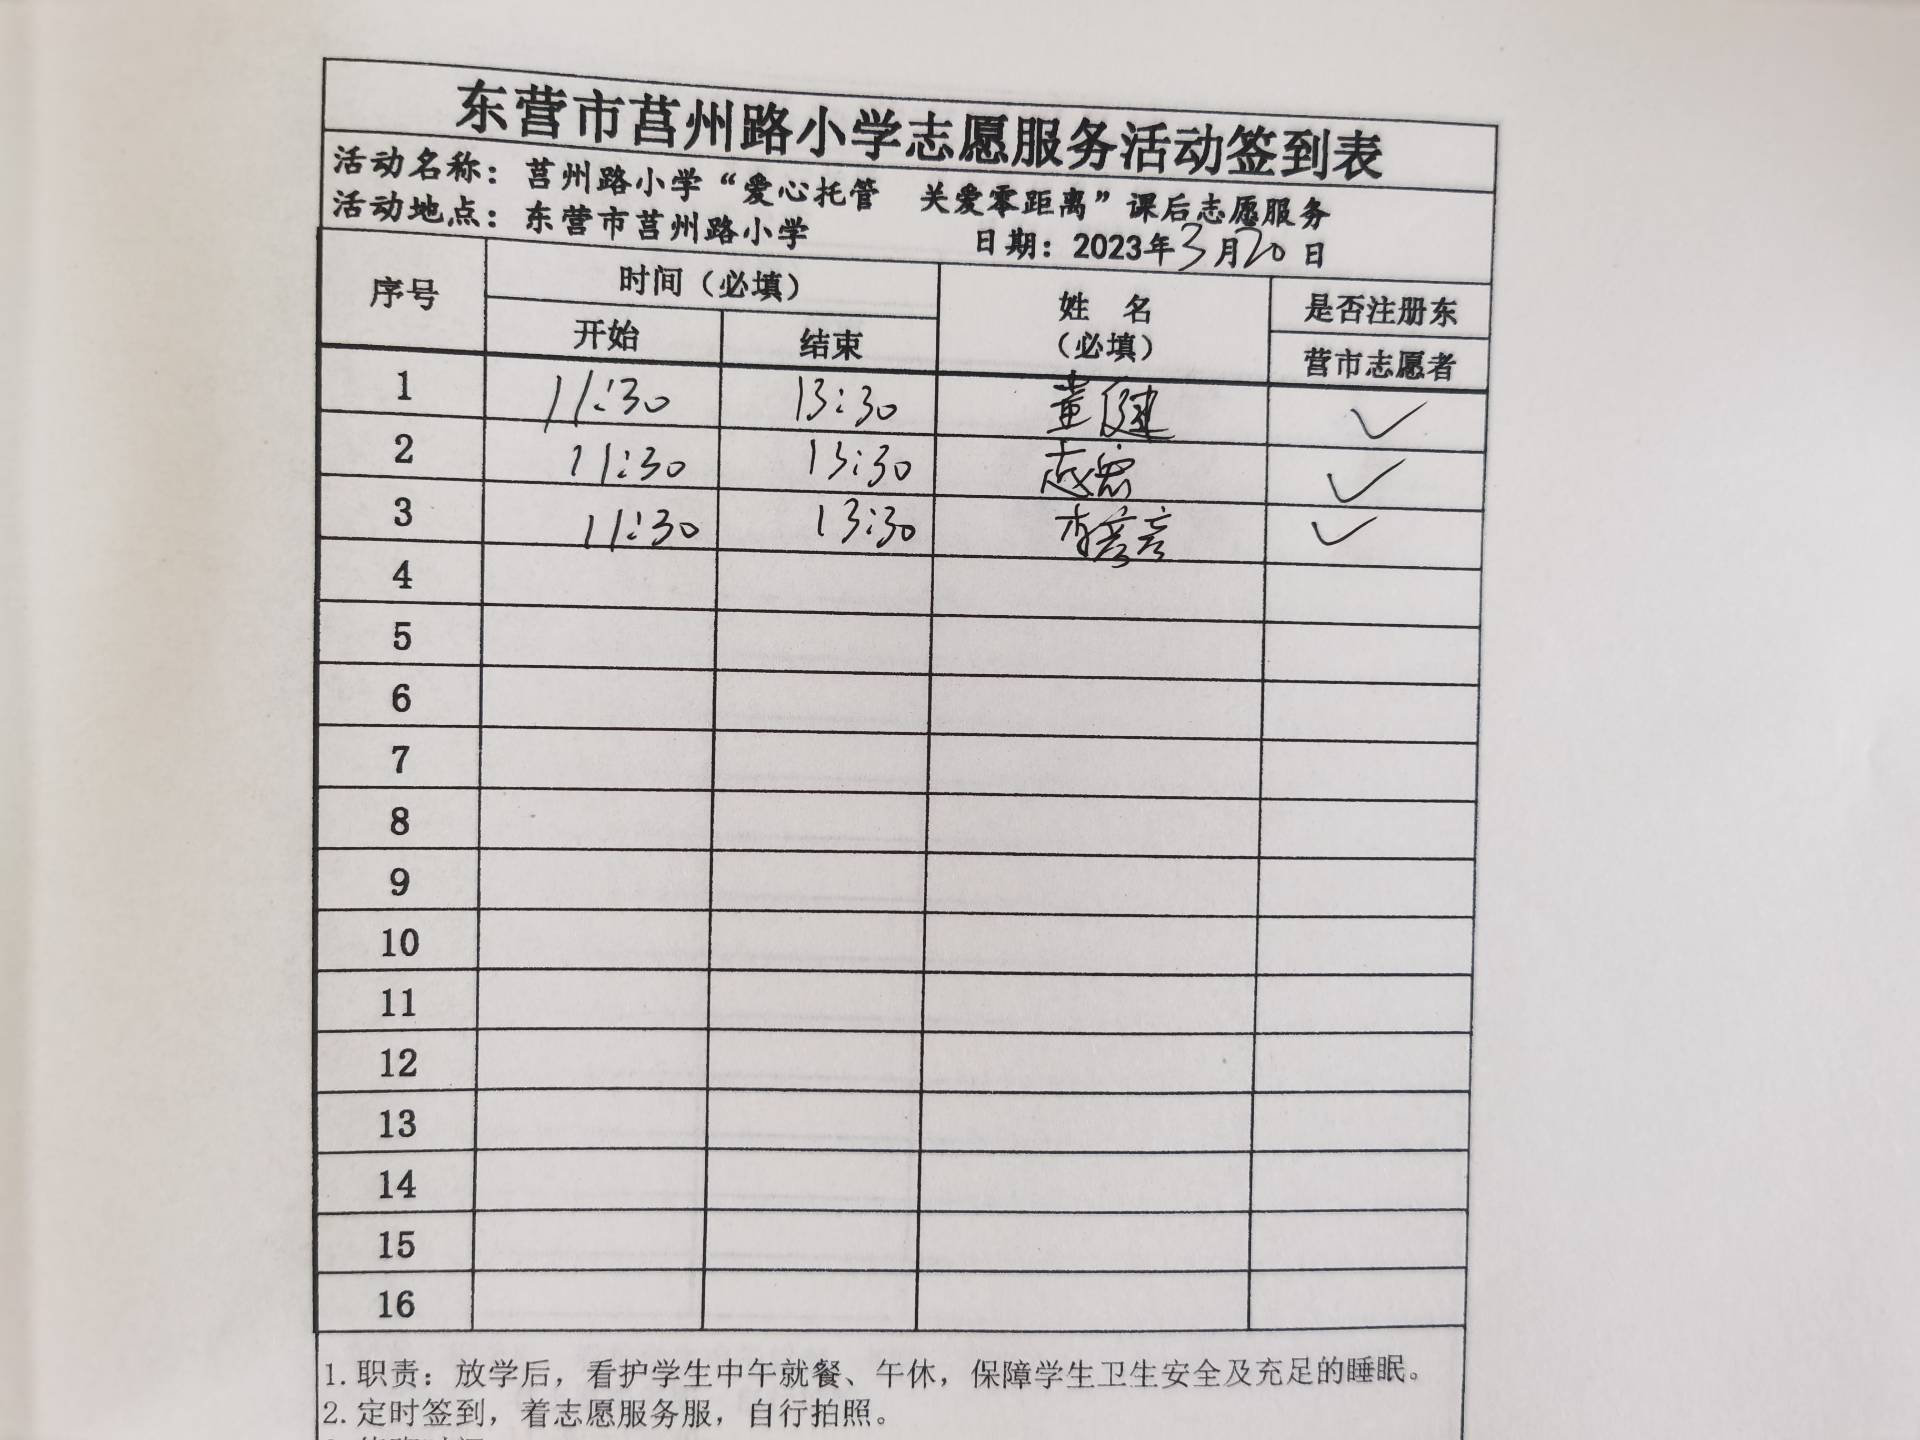 东营市莒州路小学志愿服务活动签到表
活动名称：莒州路小学“爱心托管 关爱零距离”课后志愿服务
活动地点：东营市莒州路小学 日期：2023年3月20日
序号 时间（必填） 姓 名 是否注册东
开始 结束 （必填） 营市志愿者
1 11:30 13:30 董健 ✓
2 11:30 13:30 ✓
3 11:30 13:30 李彦彦 ✓
4
5
6
7
8
9
10
11
12
13
14
15
16
1.职责：放学后，看护学生中午就餐、午休，保障学生卫生安全及充足的睡眠。
2.定时签到，着志愿服务服，自行拍照。